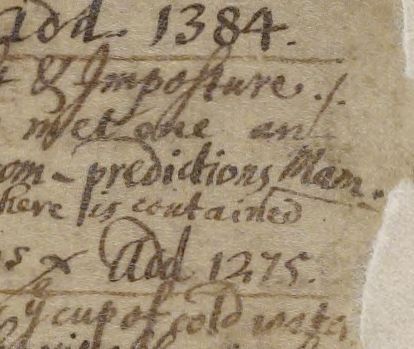 add. 1384.
& Imposture./.
met one an
om-predictions Mam.
here is contained
s x Add 1275.
y cup of cold water